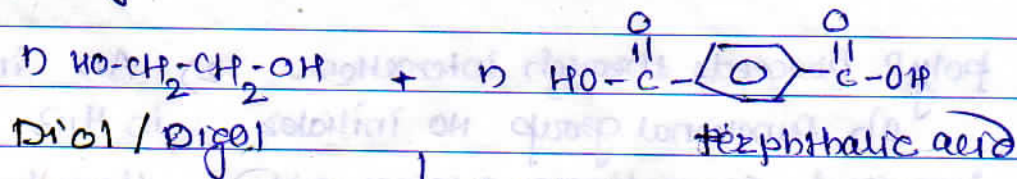 n HO-CH2-CH2-OH + n HO-C(=O)-⌬-C(=O)-OH
Diol / Digol terphthalic acid